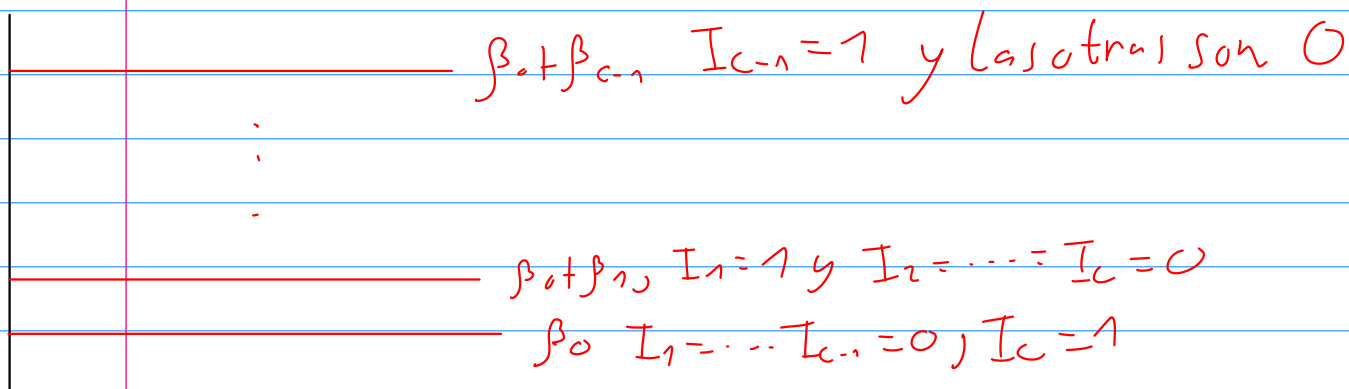 β₀+β_{c-1} I_{c-1}=1 y las otras son 0
β₀+β₁, I₁=1 y I₂=....=I_c=0
β₀ I₁=... I_{c-1}=0, I_c=1